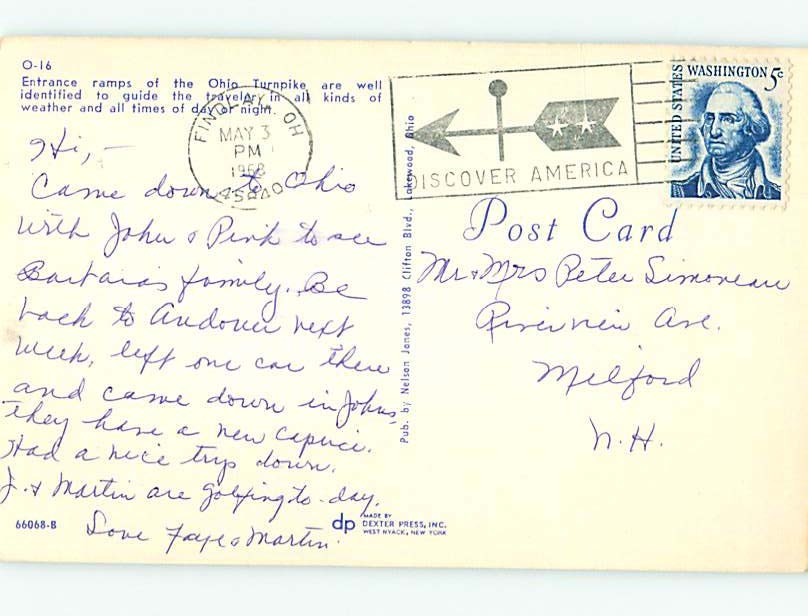 O-16
Entrance ramps of the Ohio Turnpike are well
identified to guide the traveler in all kinds of
weather and all times of day or night.
FINDLAY, OH
MAY 3
PM
1968
45840
DISCOVER AMERICA
UNITED STATES
WASHINGTON 5c
Hi,-
Came down to Ohio
with John & Pink to see
Barbara's family. Be
back to Andover next
week, left one car there
and came down in John's,
they have a new Caprice.
Had a nice trip down.
J. & Martin are golfing to-day.
Love Faye & Martin.
66068-B
Pub. by Nelson Jones, 13898 Clifton Blvd., Lakewood, Ohio
dp MADE BY
DEXTER PRESS, INC.
WEST NYACK, NEW YORK
Post Card
Mr & Mrs Peter Simoneau
Riverview Ave.
Milford
N.H.